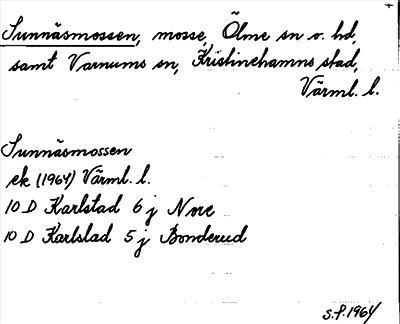 Sunnäsmossen, mosse, Ölme sn o. hd,
samt Varnums sn, Kristinehamns stad,
Värml. l.
Sunnäsmossen
ek (1964) Värml. l.
10 D Karlstad 6 j Nore
10 D Karlstad 5 j Bonderud
S.P. 1964